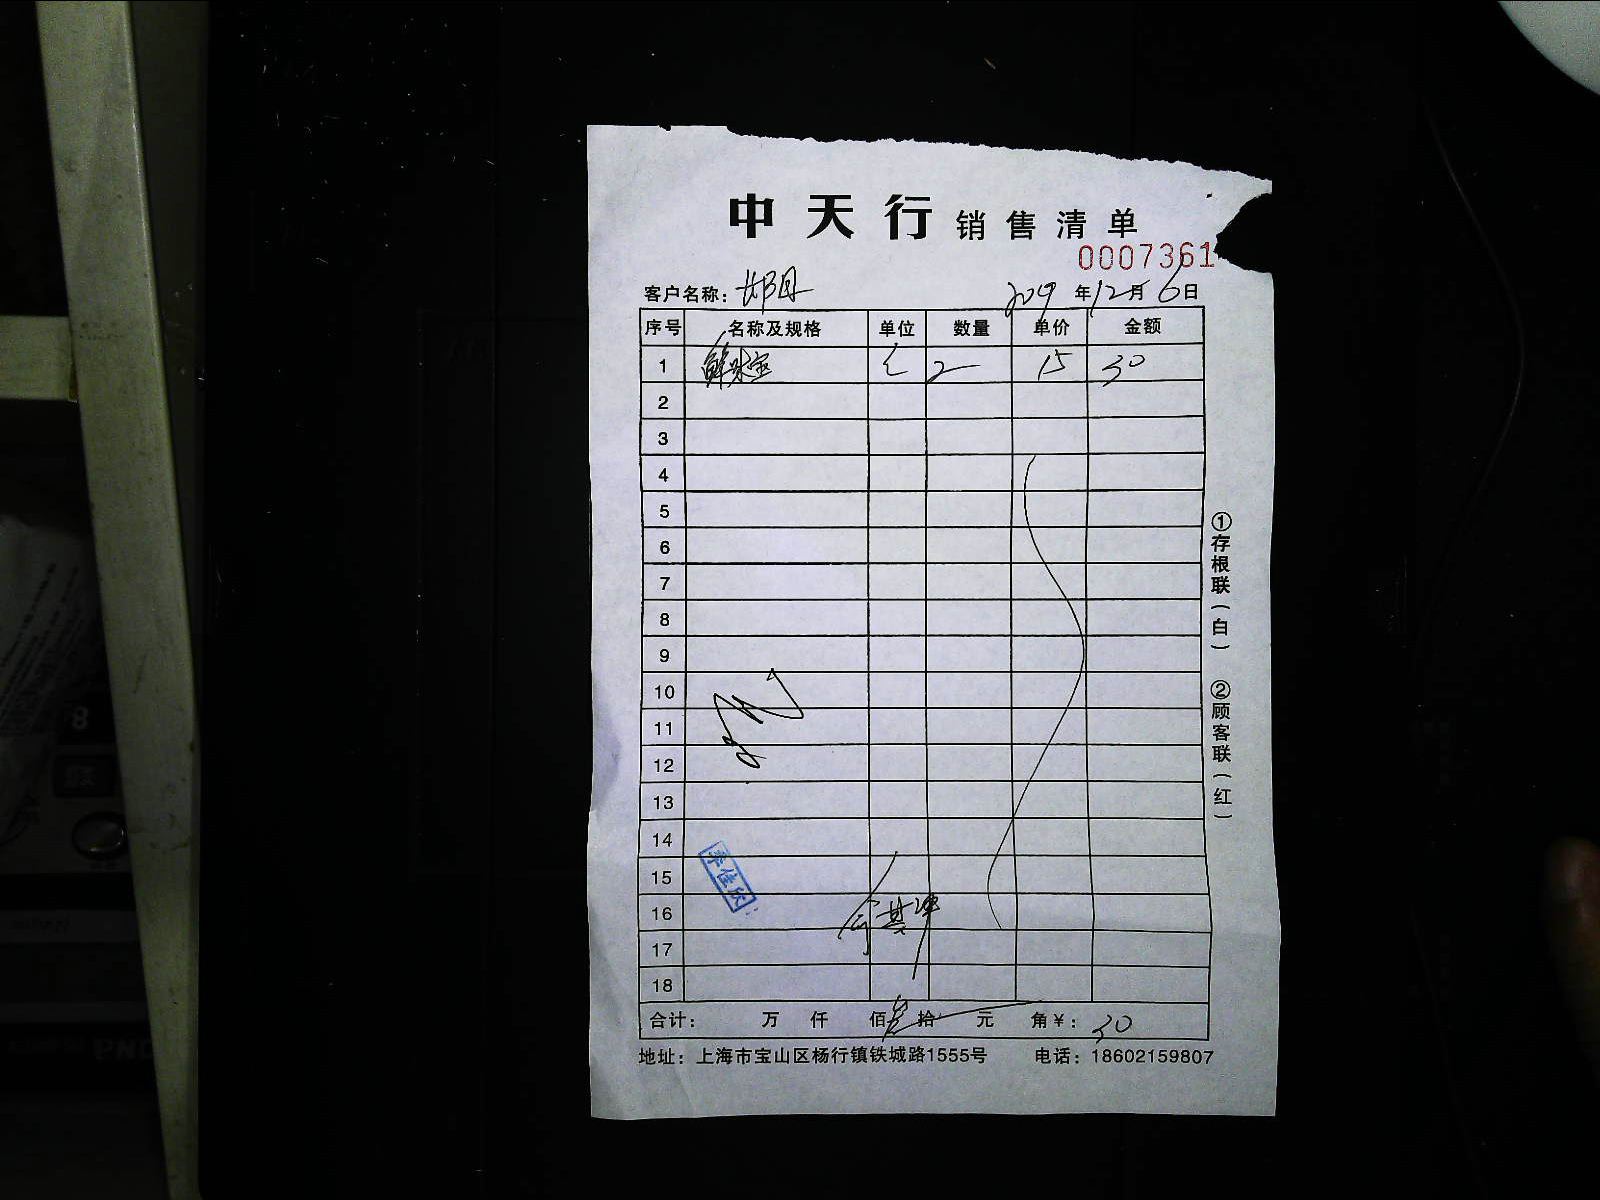 中天行 销售清单
0007361
客户名称： 2019年12月6日
序号 名称及规格 单位 数量 单价 金额
1 鲜味宝 2 15 30
2
3
4
5
6
7
8
9
10
11
12
13
14
15
16
17
18
李佳欣
合计： 万 仟 佰 叁拾 元 角￥：30
地址：上海市宝山区杨行镇铁城路1555号 电话：18602159807
①存根联（白） ②顾客联（红）